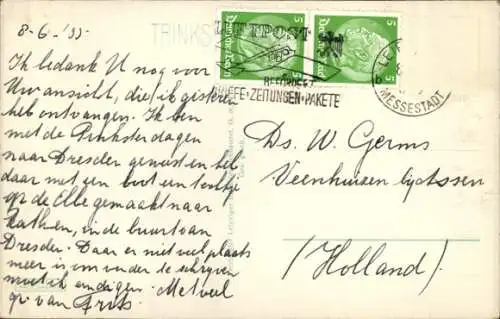 8-6-'35
Ik bedank U nog voor
Uw ansicht, die ik gisteren
heb ontvangen. Ik ben
met de Pinksterdagen
naar Dresden geweest en heb
daar met een boot een tochtje
op de Elbe gemaakt naar
Rathen, in de buurt van
Dresden. Daar er niet veel plaats
meer is om verder te schrijven
moet ik eindigen. Met veel
gr. van Frits.
TRINKS
LUFTPOST
BEFÖRDERT
BRIEFE·ZEITUNGEN·PAKETE
5
5
MESSESTADT
Ds. W. Germs
Veenhuizen
(Holland)